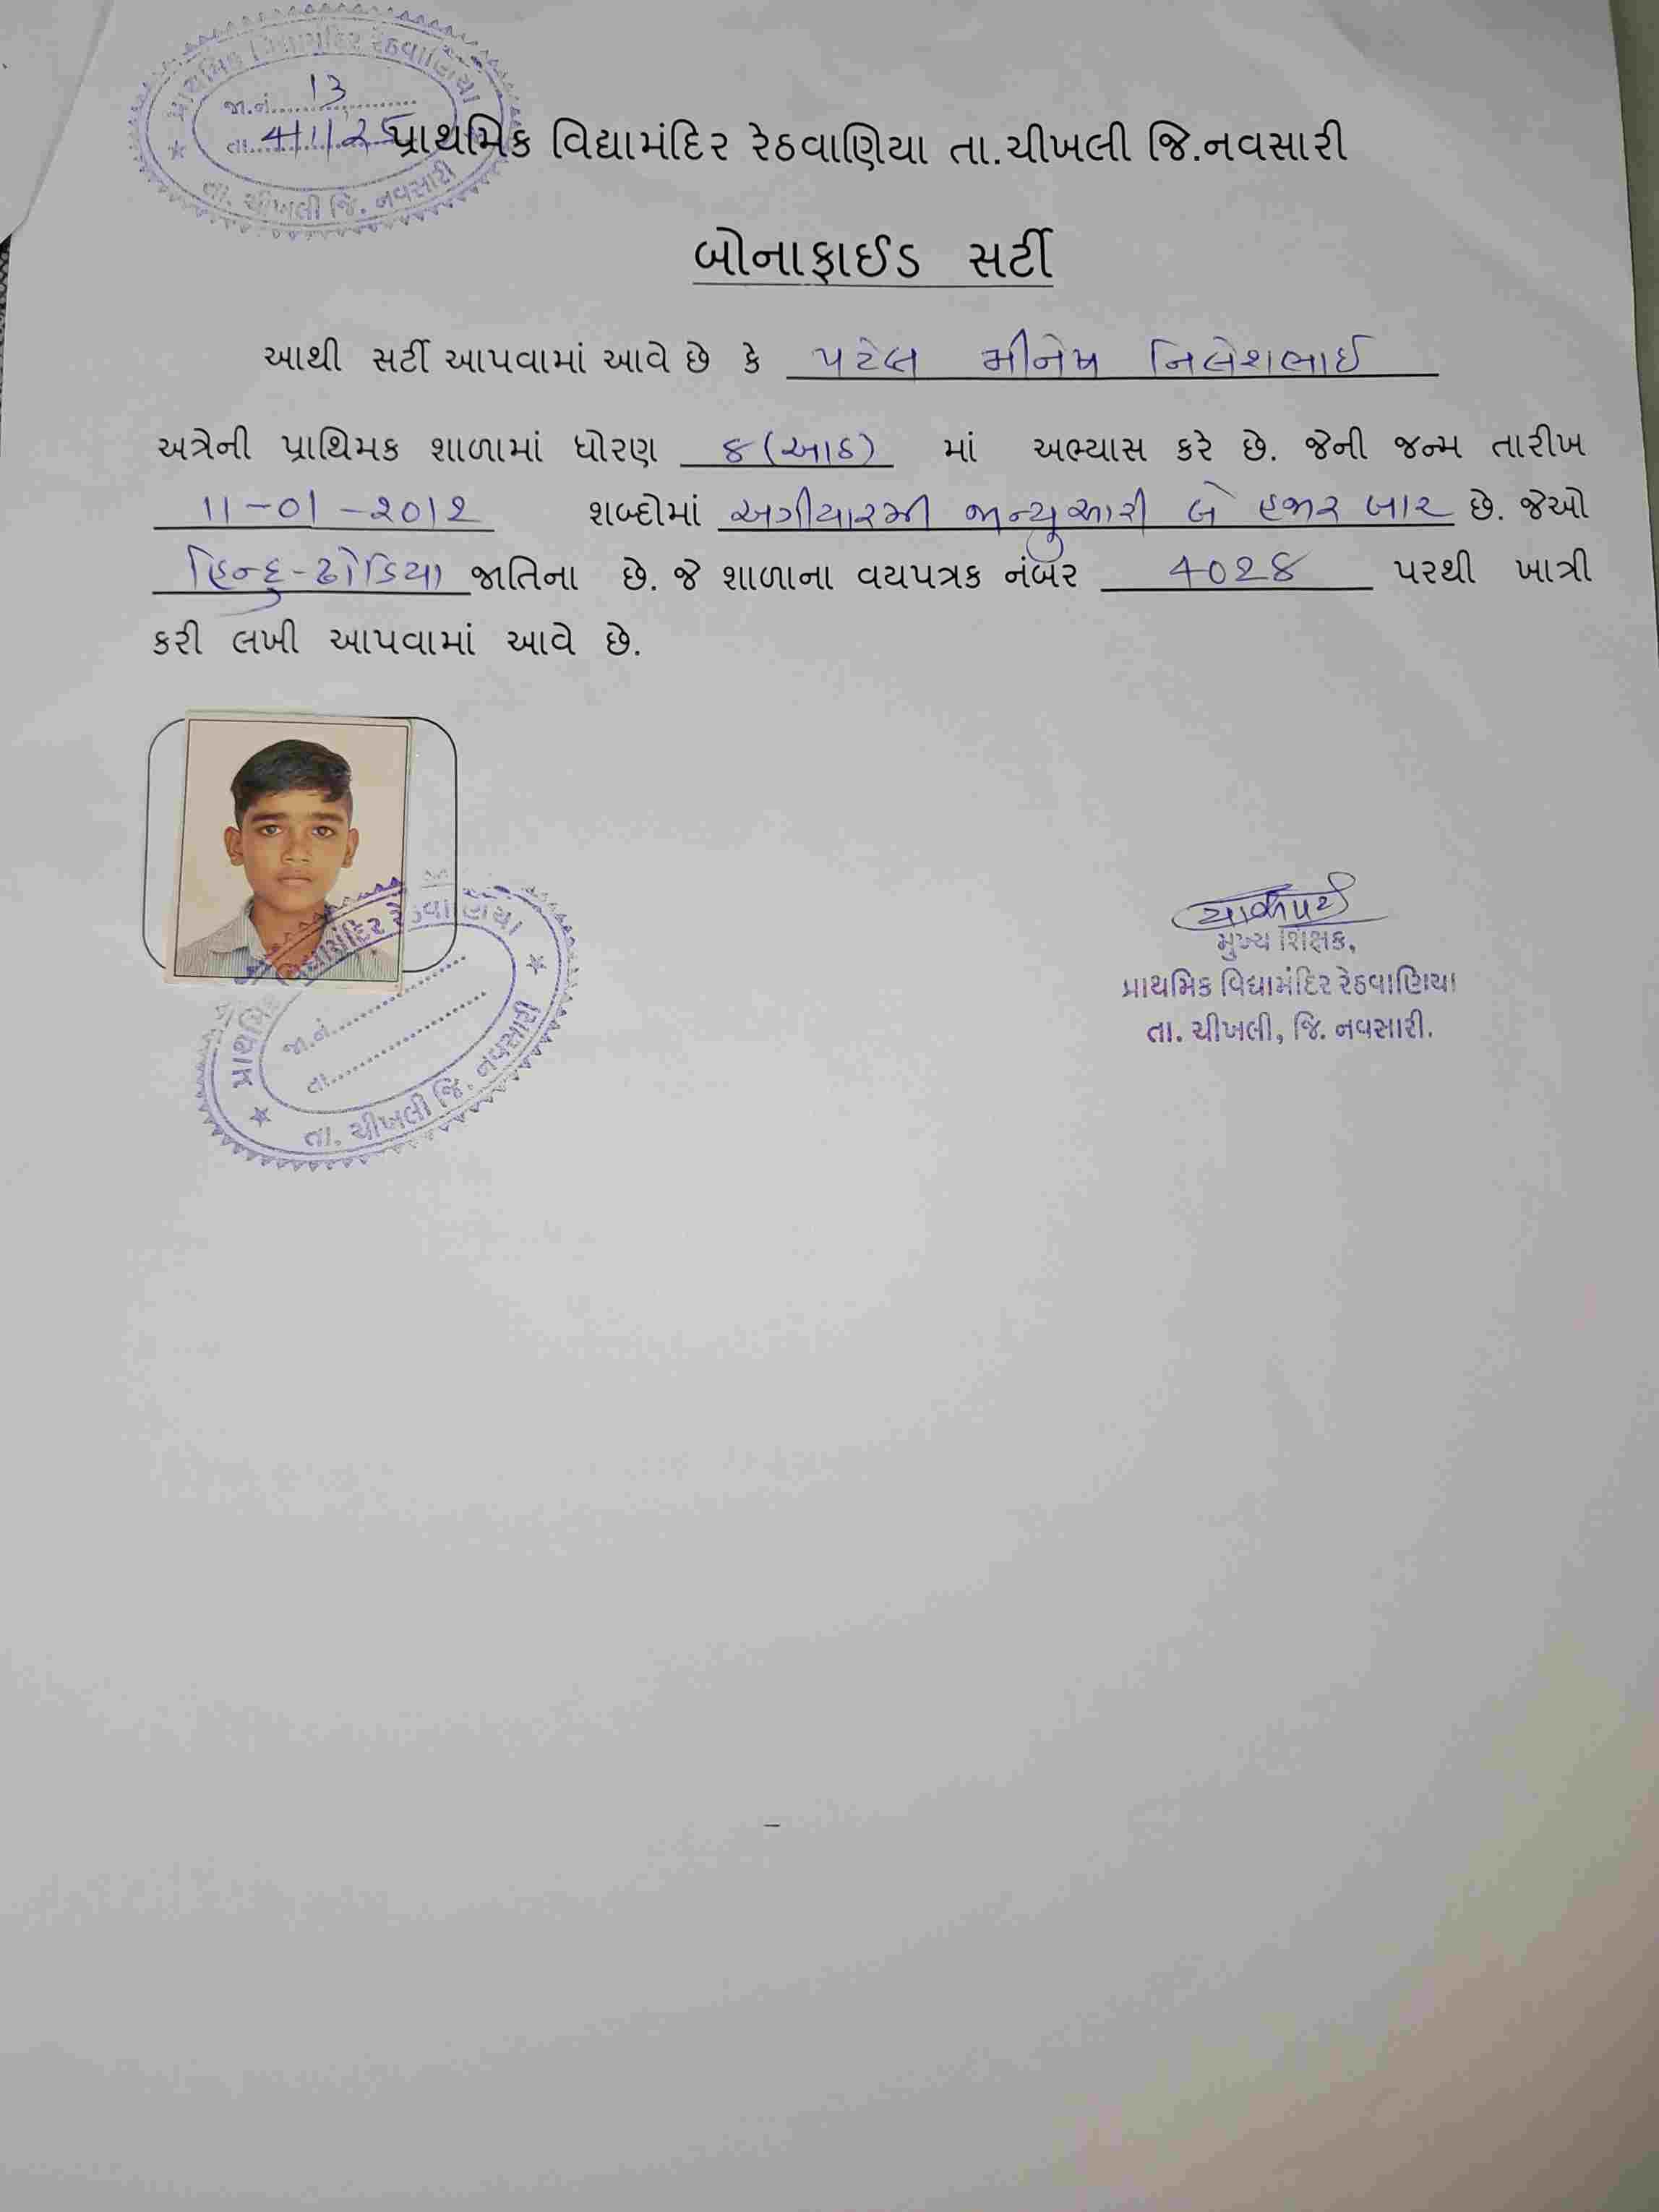 પ્રાથમિક વિદ્યામંદિર રેઠવાણિયા
જા.નં. 13
તા.
તા. ચીખલી જિ. નવસારી
પ્રાથમિક વિદ્યામંદિર રેઠવાણિયા તા.ચીખલી જિ.નવસારી
બોનાફાઈડ સર્ટી
આથી સર્ટી આપવામાં આવે છે કે પટેલ મીનેષ નિલેશભાઈ
અત્રેની પ્રાથિમક શાળામાં ધોરણ ૮ (આઠ) માં અભ્યાસ કરે છે. જેની જન્મ તારીખ
11-01-૨૦1૨ શબ્દોમાં અગીયારમી જાન્યુઆરી બે હજાર બાર છે. જેઓ
હિન્દુ-ઢોડિયા જાતિના છે. જે શાળાના વયપત્રક નંબર ૪૦૨૪ પરથી ખાત્રી
કરી લખી આપવામાં આવે છે.
પ્રાથમિક વિદ્યામંદિર રેઠવાણિયા
જા.નં.
તા.
તા. ચીખલી જિ. નવસારી
મુખ્ય શિક્ષક,
પ્રાથમિક વિદ્યામંદિર રેઠવાણિયા
તા. ચીખલી, જિ. નવસારી.